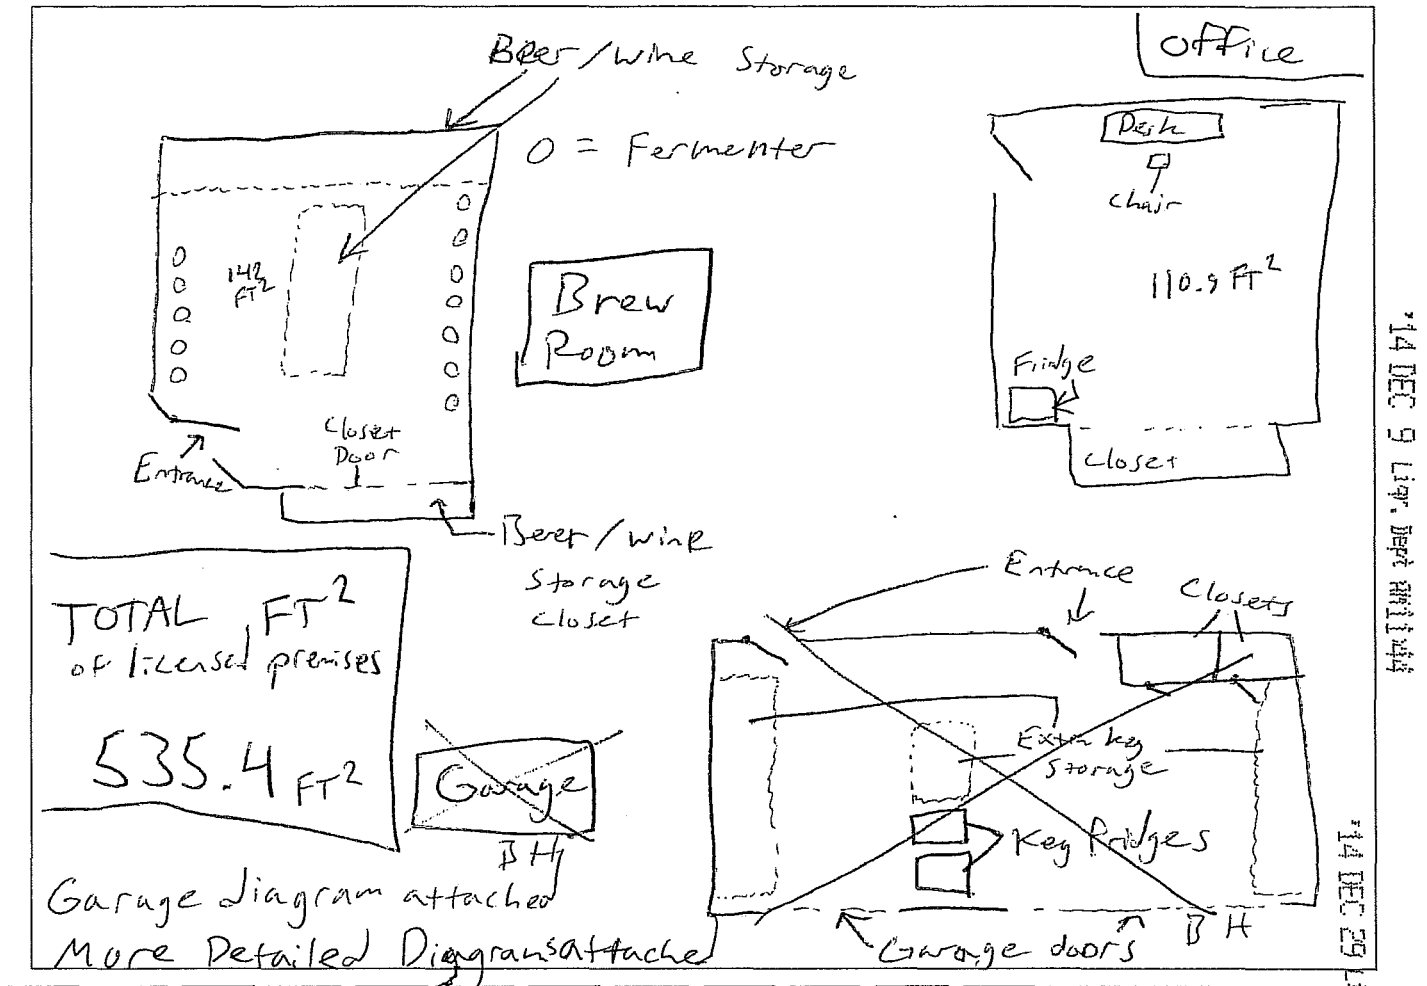 Beer/wine Storage
O = Fermenter
142
FT²
Brew
Room
Closet
Door
Entrance
Beer/wine
Storage
Closet
office
Desk
Chair
110.9 FT²
Fridge
Closet
TOTAL FT²
of licensed premises
535.4 FT²
Garage
B H
Garage diagram attached
More Detailed Diagrams attached
Entrance
Closets
Extra keg
Storage
Keg Fridges
Garage doors
B H
'14 DEC 9 Liqr. Dept AM11:44
'14 DEC 29